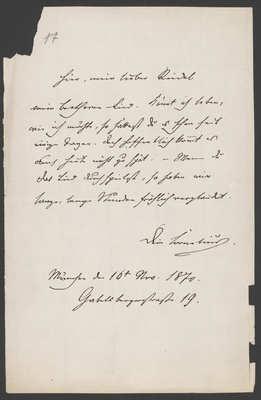 17
Hier, mein lieber Riedel
mein Beethoven-Lied. Könnt ich leben,
wie ich möchte, so hättest du es schon seit
einige Tagen. Doch hoffentlich kommt es
auch heute nicht zu spät. – Wenn du
das Lied durchspielst, so haben wir
lange, lange Stunden fröhlich verplaudert.
Dein Cornelius.
München den 16t Nov. 1870.
Gabelsbergerstraße 19.